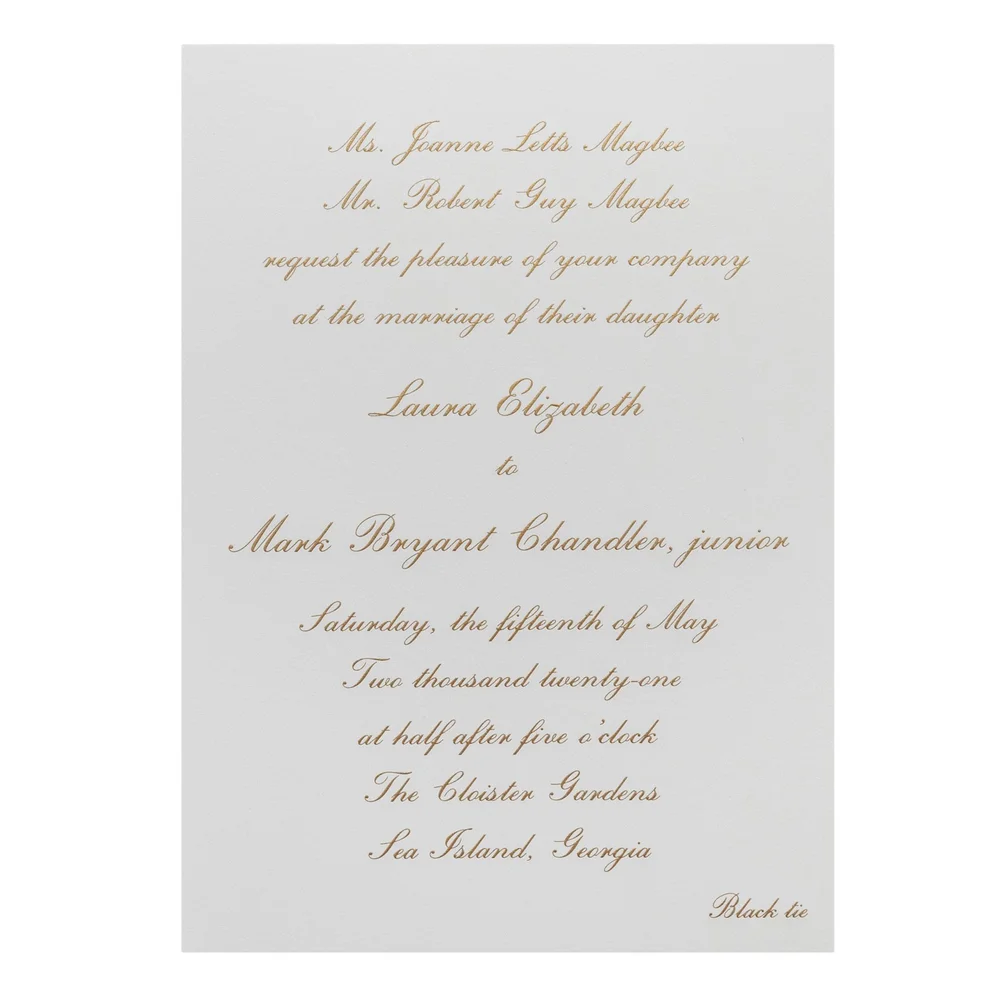 Ms. Joanne Letts Magbee
Mr. Robert Guy Magbee
request the pleasure of your company
at the marriage of their daughter
Laura Elizabeth
to
Mark Bryant Chandler, junior
Saturday, the fifteenth of May
Two thousand twenty-one
at half after five o'clock
The Cloister Gardens
Sea Island, Georgia
Black tie